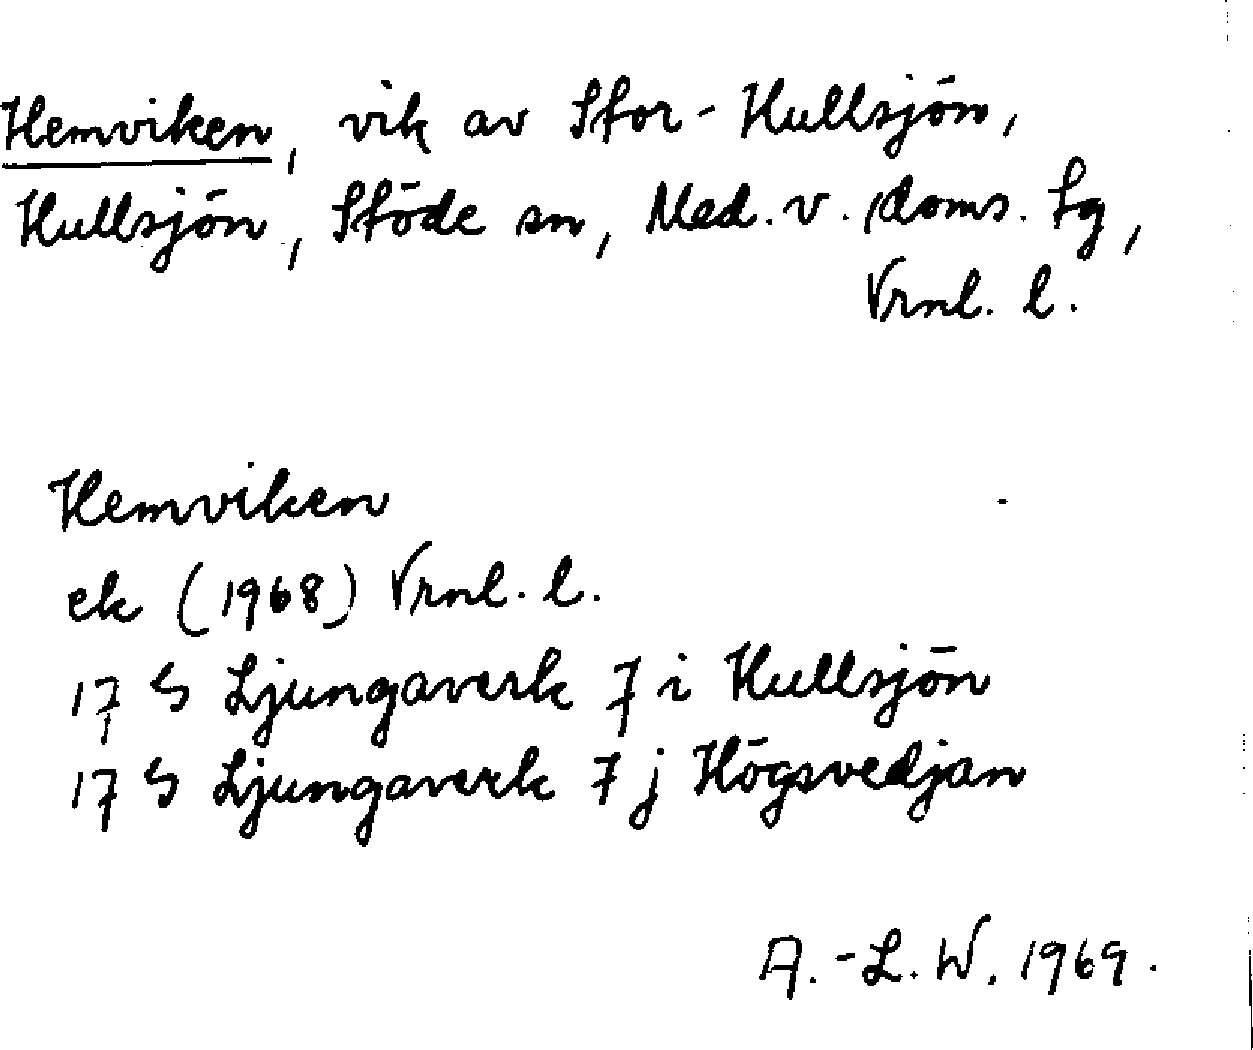 Hemviken, vik av Stor-Hullsjön,
Hullsjön, Stöde sn, Med. v. doms. tg,
Vrnl. l.
Hemviken
ek (1968) Vrnl. l.
17 G Ljungaverk 7 i Hullsjön
17 G Ljungaverk 7 j Högsvedjan
A.-L. W. 1969.